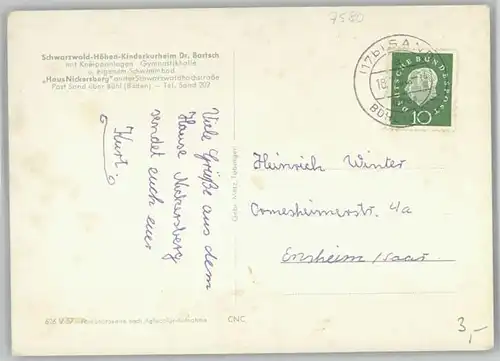 7580
Schwarzwald-Höhen-Kinderkurheim Dr. Bartsch
mit Kneippanlagen Gymnastikhalle
u. eigenem Schwimmbad
„Haus Nickersberg" an der Schwarzwaldhochstraße
Post Sand über Bühl (Baden) — Tel. Sand 202
Viele Grüße aus dem
Hause Nickersberg
sendet euch euer
Kurt
Gebr. Metz, Tübingen
(17b) SAND
BÜHL
DEUTSCHE BUNDESPOST
10
Heinrich Winter
Ormesheimerstr. 4a
Ensheim/Saar
CNC
3,-